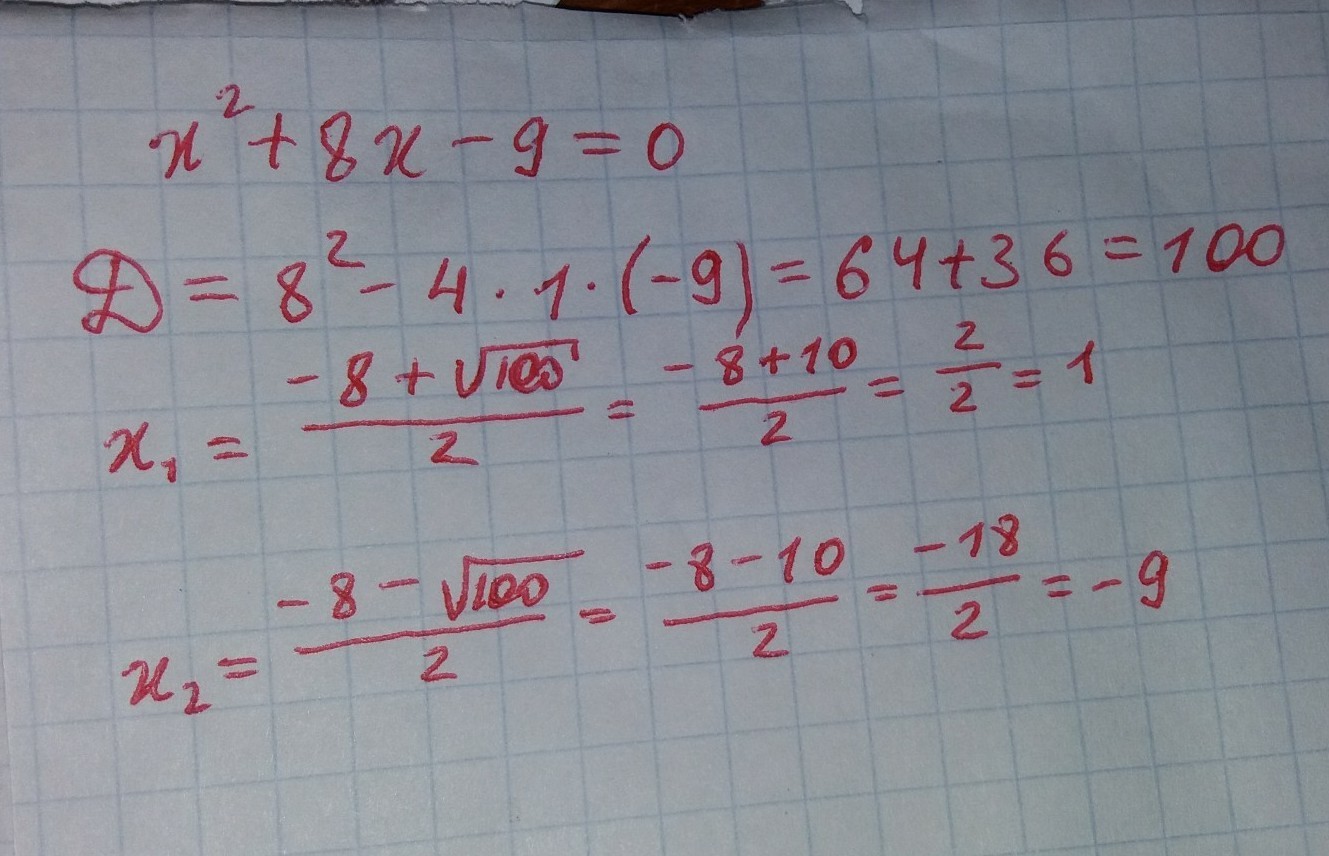 x² + 8x - 9 = 0
D = 8² - 4 · 1 · (-9) = 64 + 36 = 100
x₁ = (-8 + √100)/2 = (-8 + 10)/2 = 2/2 = 1
x₂ = (-8 - √100)/2 = (-8 - 10)/2 = -18/2 = -9